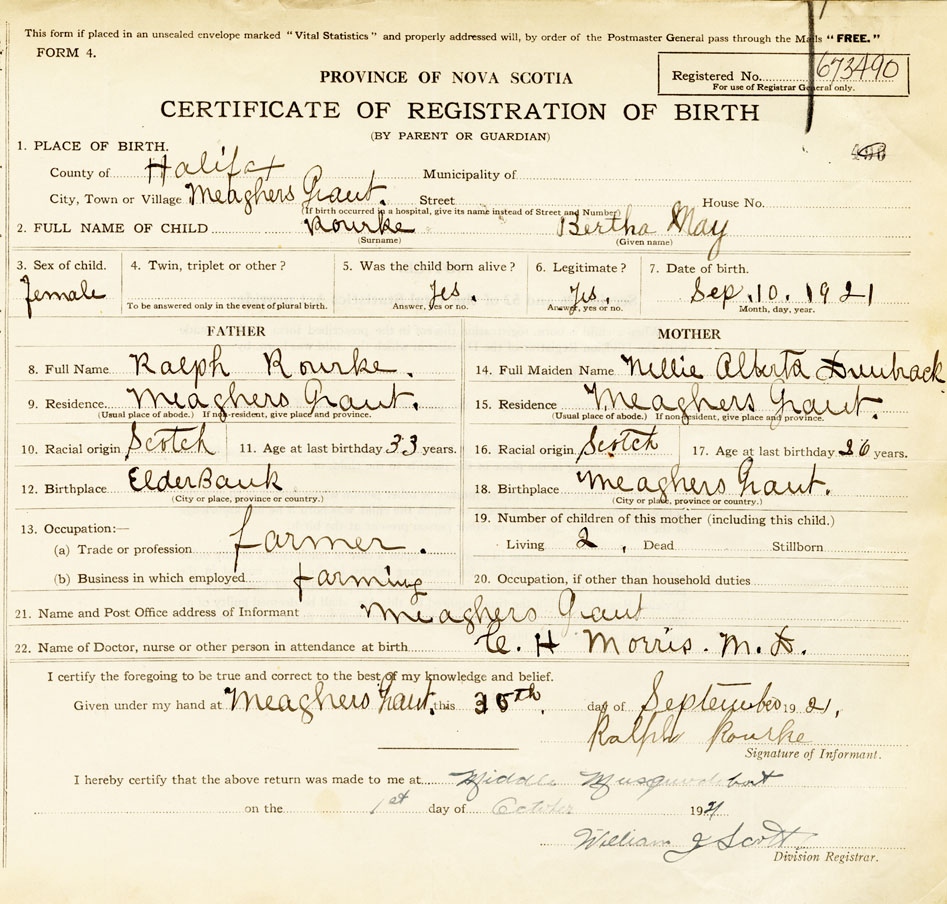 This form if placed in an unsealed envelope marked "Vital Statistics" and properly addressed will, by order of the Postmaster General pass through the Mails "FREE."
FORM 4.
PROVINCE OF NOVA SCOTIA
Registered No. 673490
For use of Registrar General only.
CERTIFICATE OF REGISTRATION OF BIRTH
(BY PARENT OR GUARDIAN)
1. PLACE OF BIRTH.
County of Halifax Municipality of
City, Town or Village Meaghers Grant. Street House No.
(If birth occurred in a hospital, give its name instead of Street and Number)
2. FULL NAME OF CHILD Rourke Bertha May
(Surname) (Given name)
3. Sex of child. 4. Twin, triplet or other ? 5. Was the child born alive ? 6. Legitimate ? 7. Date of birth.
Female Yes. Yes. Sep. 10. 1921
To be answered only in the event of plural birth. Answer, yes or no. Answer, yes or no. Month, day, year.
FATHER MOTHER
8. Full Name Ralph Rourke. 14. Full Maiden Name Nellie Alberta Dunbrack
9. Residence Meaghers Grant. 15. Residence Meaghers Grant.
(Usual place of abode.) If non-resident, give place and province. (Usual place of abode.) If non-resident, give place and province.
10. Racial origin Scotch 11. Age at last birthday 33 years. 16. Racial origin Scotch 17. Age at last birthday 26 years.
12. Birthplace ElderBank 18. Birthplace Meaghers Grant.
(City or place, province or country.) (City or place, province or country.)
13. Occupation:— 19. Number of children of this mother (including this child.)
(a) Trade or profession farmer. Living 2, Dead Stillborn
(b) Business in which employed farming 20. Occupation, if other than household duties
21. Name and Post Office address of Informant Meaghers Grant
22. Name of Doctor, nurse or other person in attendance at birth H Morris. M.D.
I certify the foregoing to be true and correct to the best of my knowledge and belief.
Given under my hand at Meaghers Grant. this 30th. day of September 1921.
Ralph Rourke
Signature of Informant.
I hereby certify that the above return was made to me at Middle Musquodoboit
on the 1st day of October 1921
William J Scott
Division Registrar.